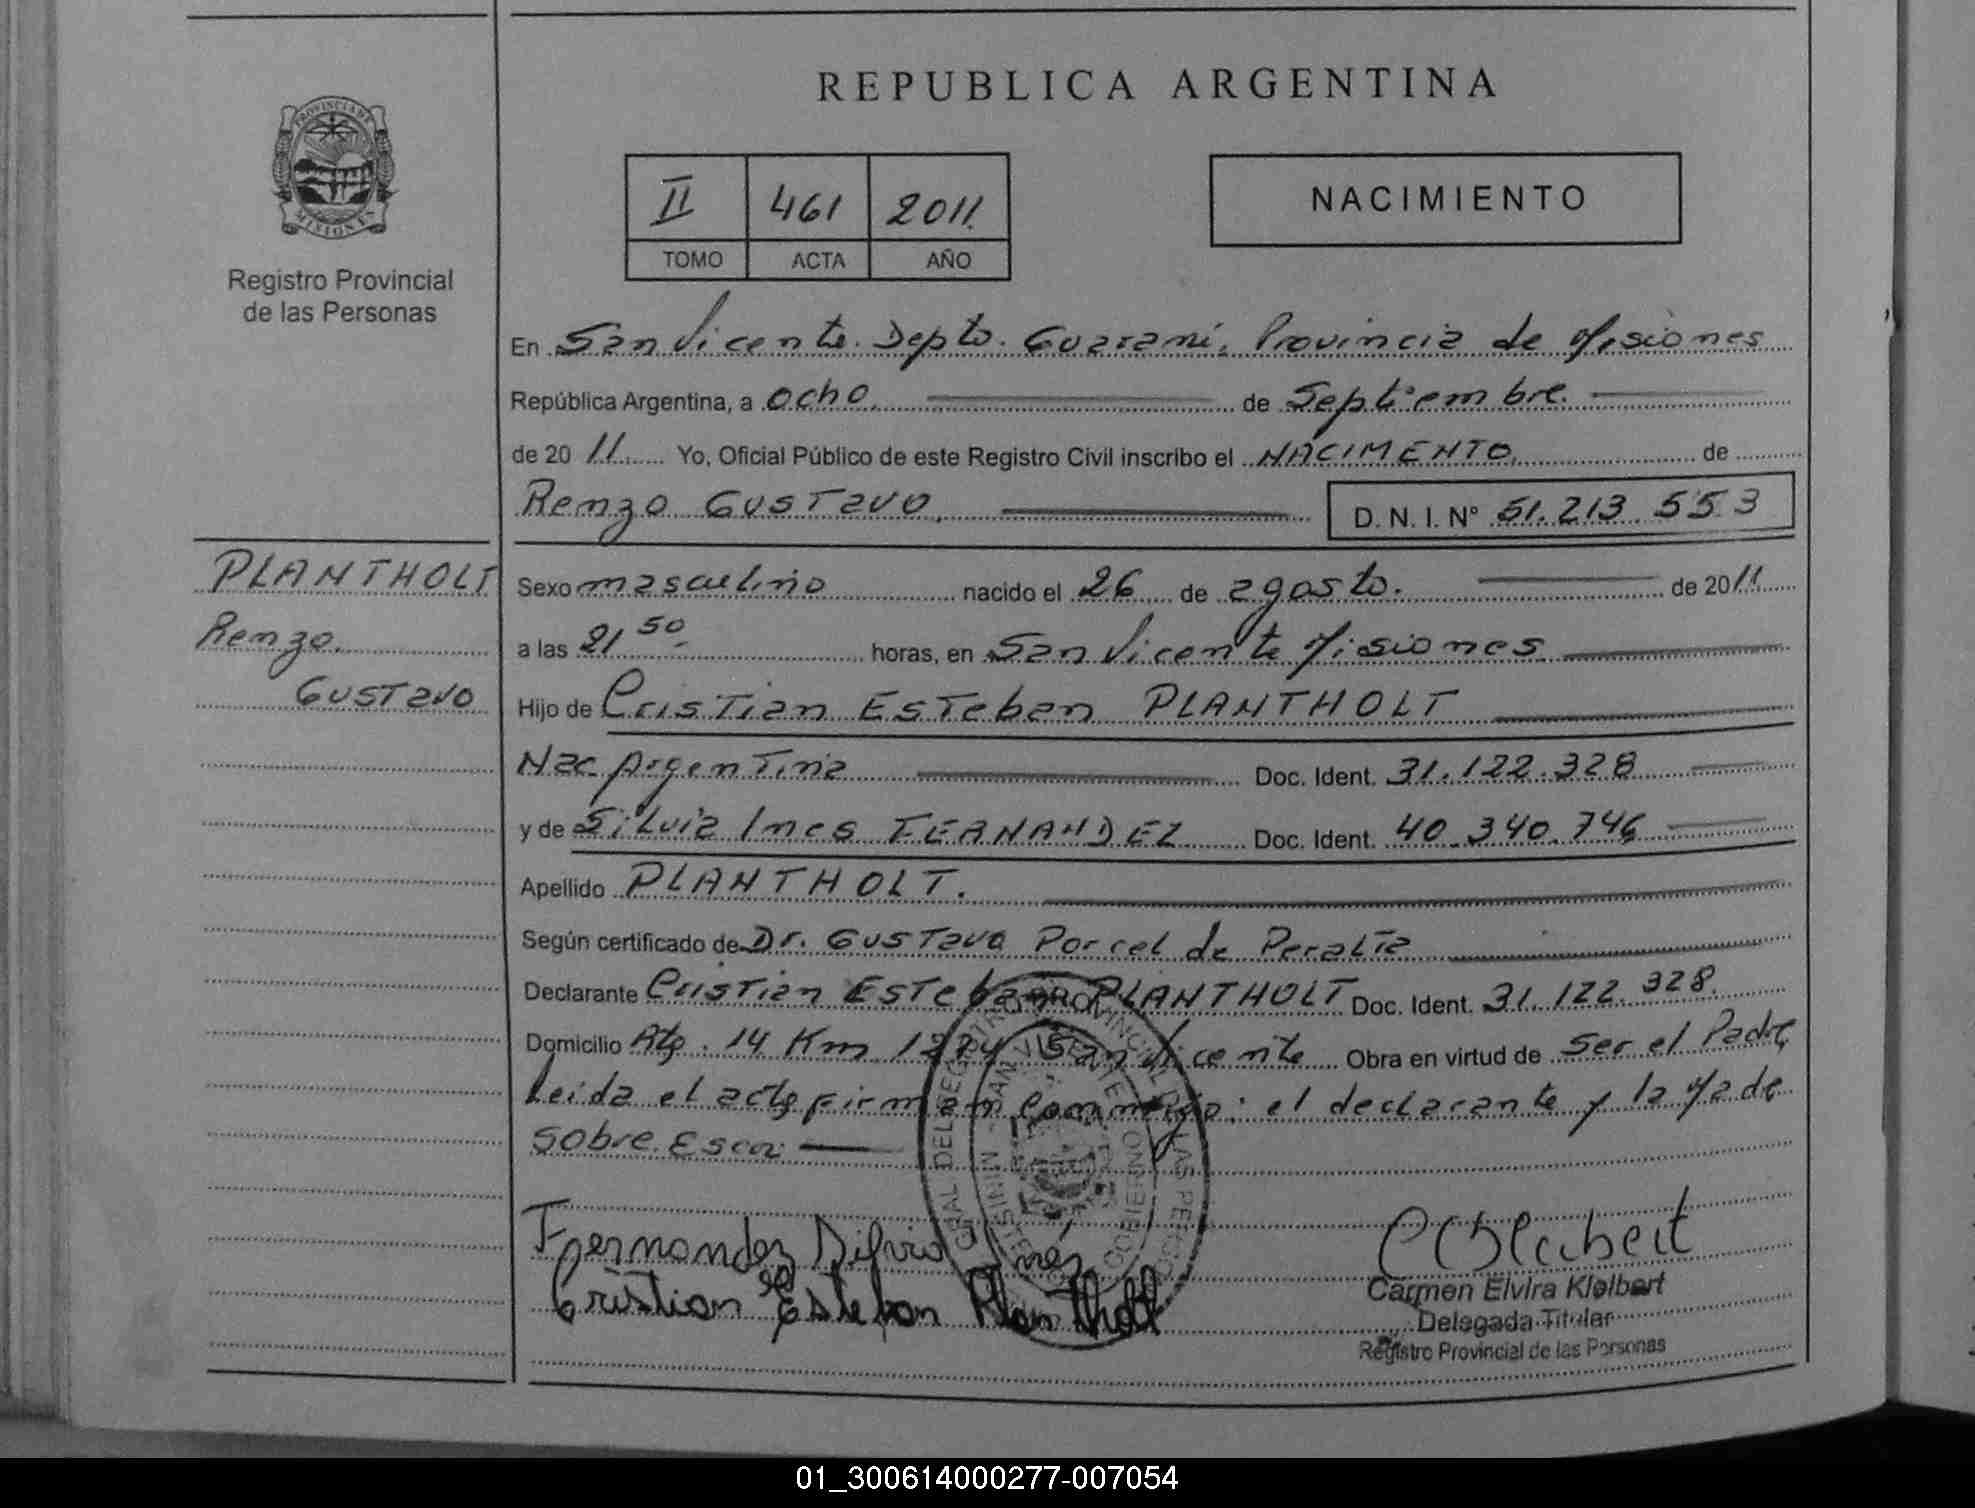 REPUBLICA ARGENTINA
PROVINCIA DE
MISIONES
Registro Provincial
de las Personas
II 461 2011.
TOMO ACTA AÑO
NACIMIENTO
En San Vicente. Depto. Guaraní, Provincia de Misiones
República Argentina, a ocho. de Septiembre.
de 2011 Yo, Oficial Público de este Registro Civil inscribo el NACIMENTO, de
Renzo GUSTavo. D. N. I. N° 51.213.553
PLANTHOLT
Renzo.
GUSTavo
Sexo masculino nacido el 26 de agosto. de 2011
a las 21 50 horas, en San Vicente Misiones
Hijo de CrisTian ESTeban PLANTHOLT
Nac ArgenTina Doc. Ident. 31.122.328
y de Silvia Ines FERNANDEZ Doc. Ident. 40.340.746
Apellido PLANTHOLT.
Según certificado de Dr. GUSTavo Porcel de PeralTa
Declarante CrisTian ESTeban PLANTHOLT Doc. Ident. 31.122.328.
Domicilio Rta. 14 Km San Vicente Obra en virtud de Ser el Padre
Leida el acta firman conmigo: el declarante y la Ma de
sobre.
Fernandez Silvia Ines
Cristian Esteban Plantholt
Carmen Elvira Kleibert
Delegada Titular
Registro Provincial de las Personas
01_300614000277-007054